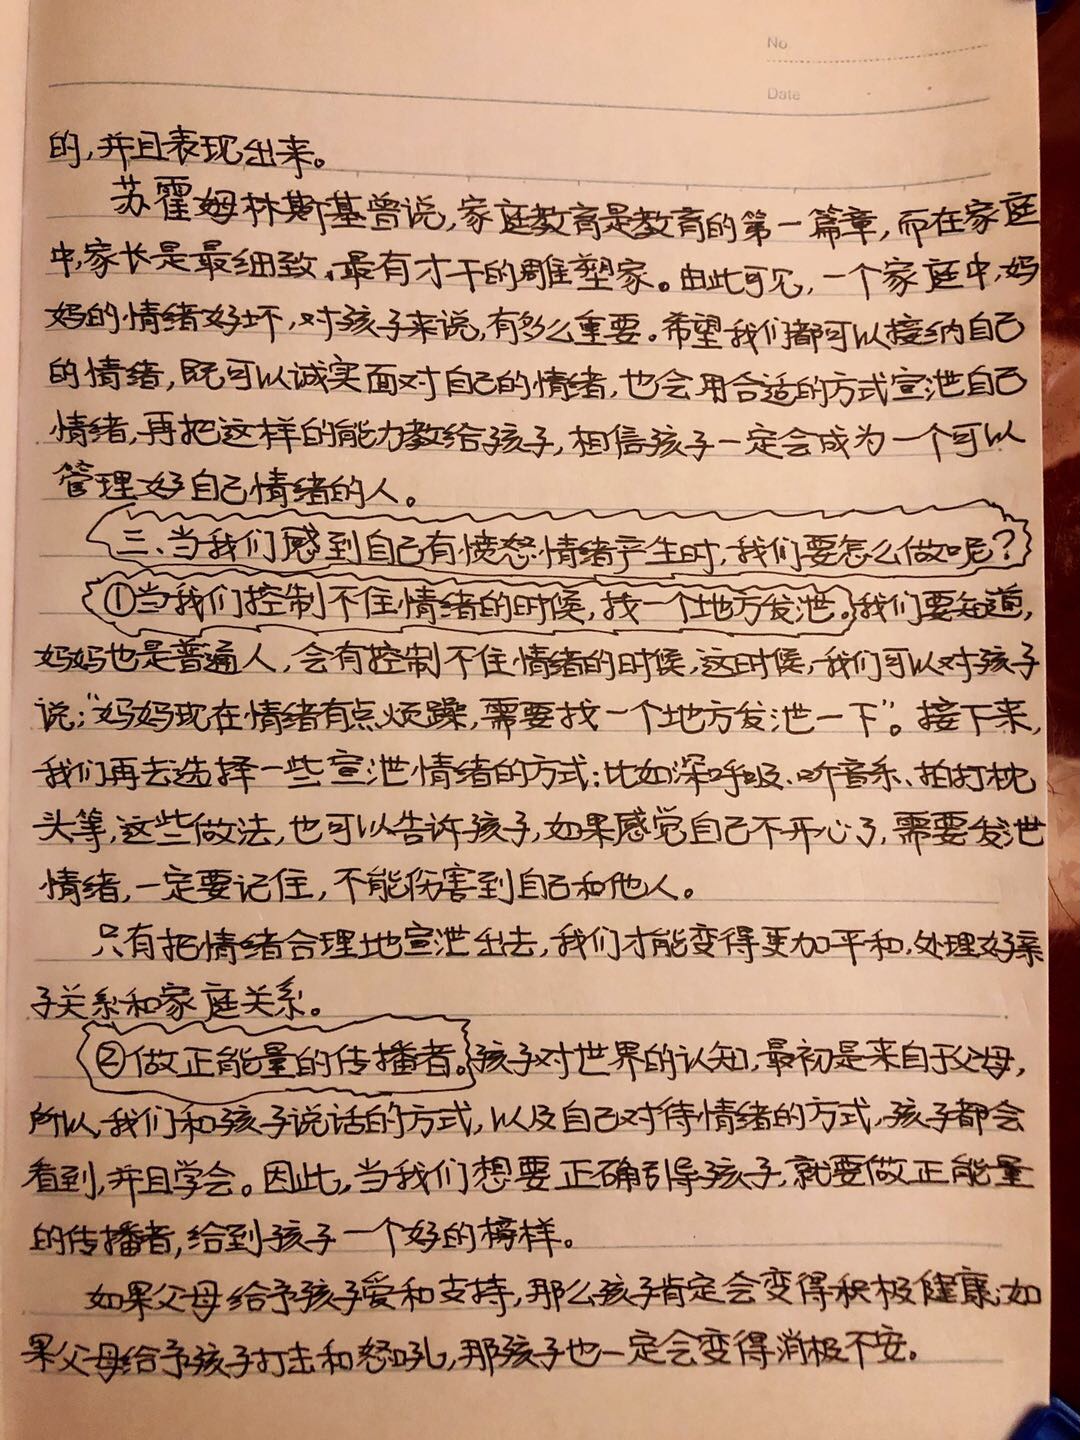 No
Date
的,并且表现出来。
苏霍姆林斯基曾说,家庭教育是教育的第一篇章,而在家庭
中,家长是最细致、最有才干的雕塑家。由此可见,一个家庭中,妈
妈的情绪好坏,对孩子来说,有多么重要。希望我们都可以接纳自己
的情绪,既可以诚实面对自己的情绪,也会用合适的方式宣泄自己
情绪,再把这样的能力教给孩子,相信孩子一定会成为一个可以
管理好自己情绪的人。
三、当我们感到自己有愤怒情绪产生时,我们要怎么做呢?
①当我们控制不住情绪的时候,找一个地方发泄。我们要知道,
妈妈也是普通人,会有控制不住情绪的时候,这时候,我们可以对孩子
说:“妈妈现在情绪有点烦躁,需要找一个地方发泄一下”。接下来,
我们再去选择一些宣泄情绪的方式:比如深呼吸、听音乐、拍打枕
头等,这些做法,也可以告诉孩子,如果感觉自己不开心了,需要发泄
情绪,一定要记住,不能伤害到自己和他人。
只有把情绪合理地宣泄出去,我们才能变得更加平和,处理好亲
子关系和家庭关系。
②做正能量的传播者。孩子对世界的认知,最初是来自于父母,
所以,我们和孩子说话的方式,以及自己对待情绪的方式,孩子都会
看到,并且学会。因此,当我们想要正确引导孩子,就要做正能量
的传播者,给到孩子一个好的榜样。
如果父母给予孩子爱和支持,那么孩子肯定会变得积极健康;如
果父母给予孩子打击和怒吼,那孩子也一定会变得消极不安。